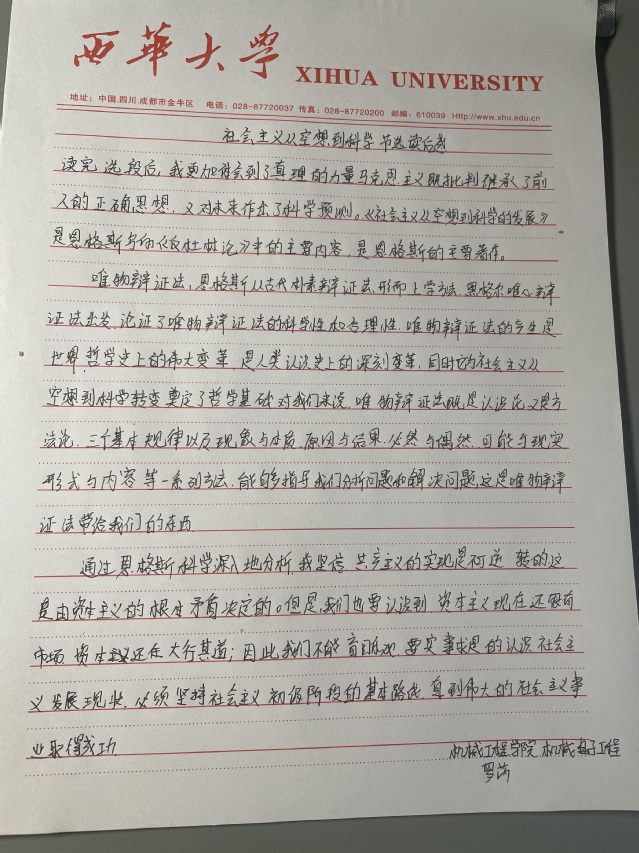 西華大學 XIHUA UNIVERSITY
地址：中国.四川.成都市金牛区 电话：028-87720037 传真：028-87720200 邮编：610039 Http://www.xhu.edu.cn
社会主义从空想到科学 节选读后感
读完 选段后，我更加体会到了真理的力量马克思主义既批判继承了前
人的正确思想，又对未来作出了科学预测。《社会主义从空想到科学的发展》
是恩格斯写的《反杜林论》中的主要内容，是恩格斯的主要著作。
唯物辩证法，恩格斯从古代朴素辩证法，形而上学方法，黑格尔唯心辩
证法出发，论证了唯物辩证法的科学性和合理性，唯物辩证法的产生是
世界哲学史上的伟大变革，是人类认识史上的深刻变革，同时它为社会主义从
空想到科学转变奠定了哲学基础 对我们来说，唯物辩证法既是认识论又是方
法论，三个基本规律以及现象与本质，原因与结果，必然与偶然，可能与现实
形式与内容 等一系列方法，能够指导我们分析问题和解决问题，这是唯物辩
证法带给我们的东西
通过恩格斯科学深入地分析，我坚信 共产主义的实现是不可逆转的这
是由资本主义的根本矛盾决定的。但是，我们也要认识到 资本主义现在还很有
市场 资本主义还在大行其道；因此我们不能盲目乐观 要实事求是的认识社会主
义发展现状，必须坚持社会主义初级阶段的基本路线，直到伟大的社会主义事
业取得成功
机械工程学院 机械电子工程
罗莎